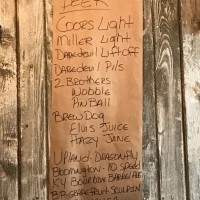 BEER
COORS Light
Miller Light
DAREDEVIL Liftoff
DAREDEVIL Pils
2 Brothers
Wobble
PINBALL
BREWDOG
ELVIS JUICE
HAZY JANE
UPLAND-DRAGONFLY
BLOOMINGTON-10 SPEED
KY BOURBON BARREL ALE
B.P. GRAPEFRUIT SCULPIN